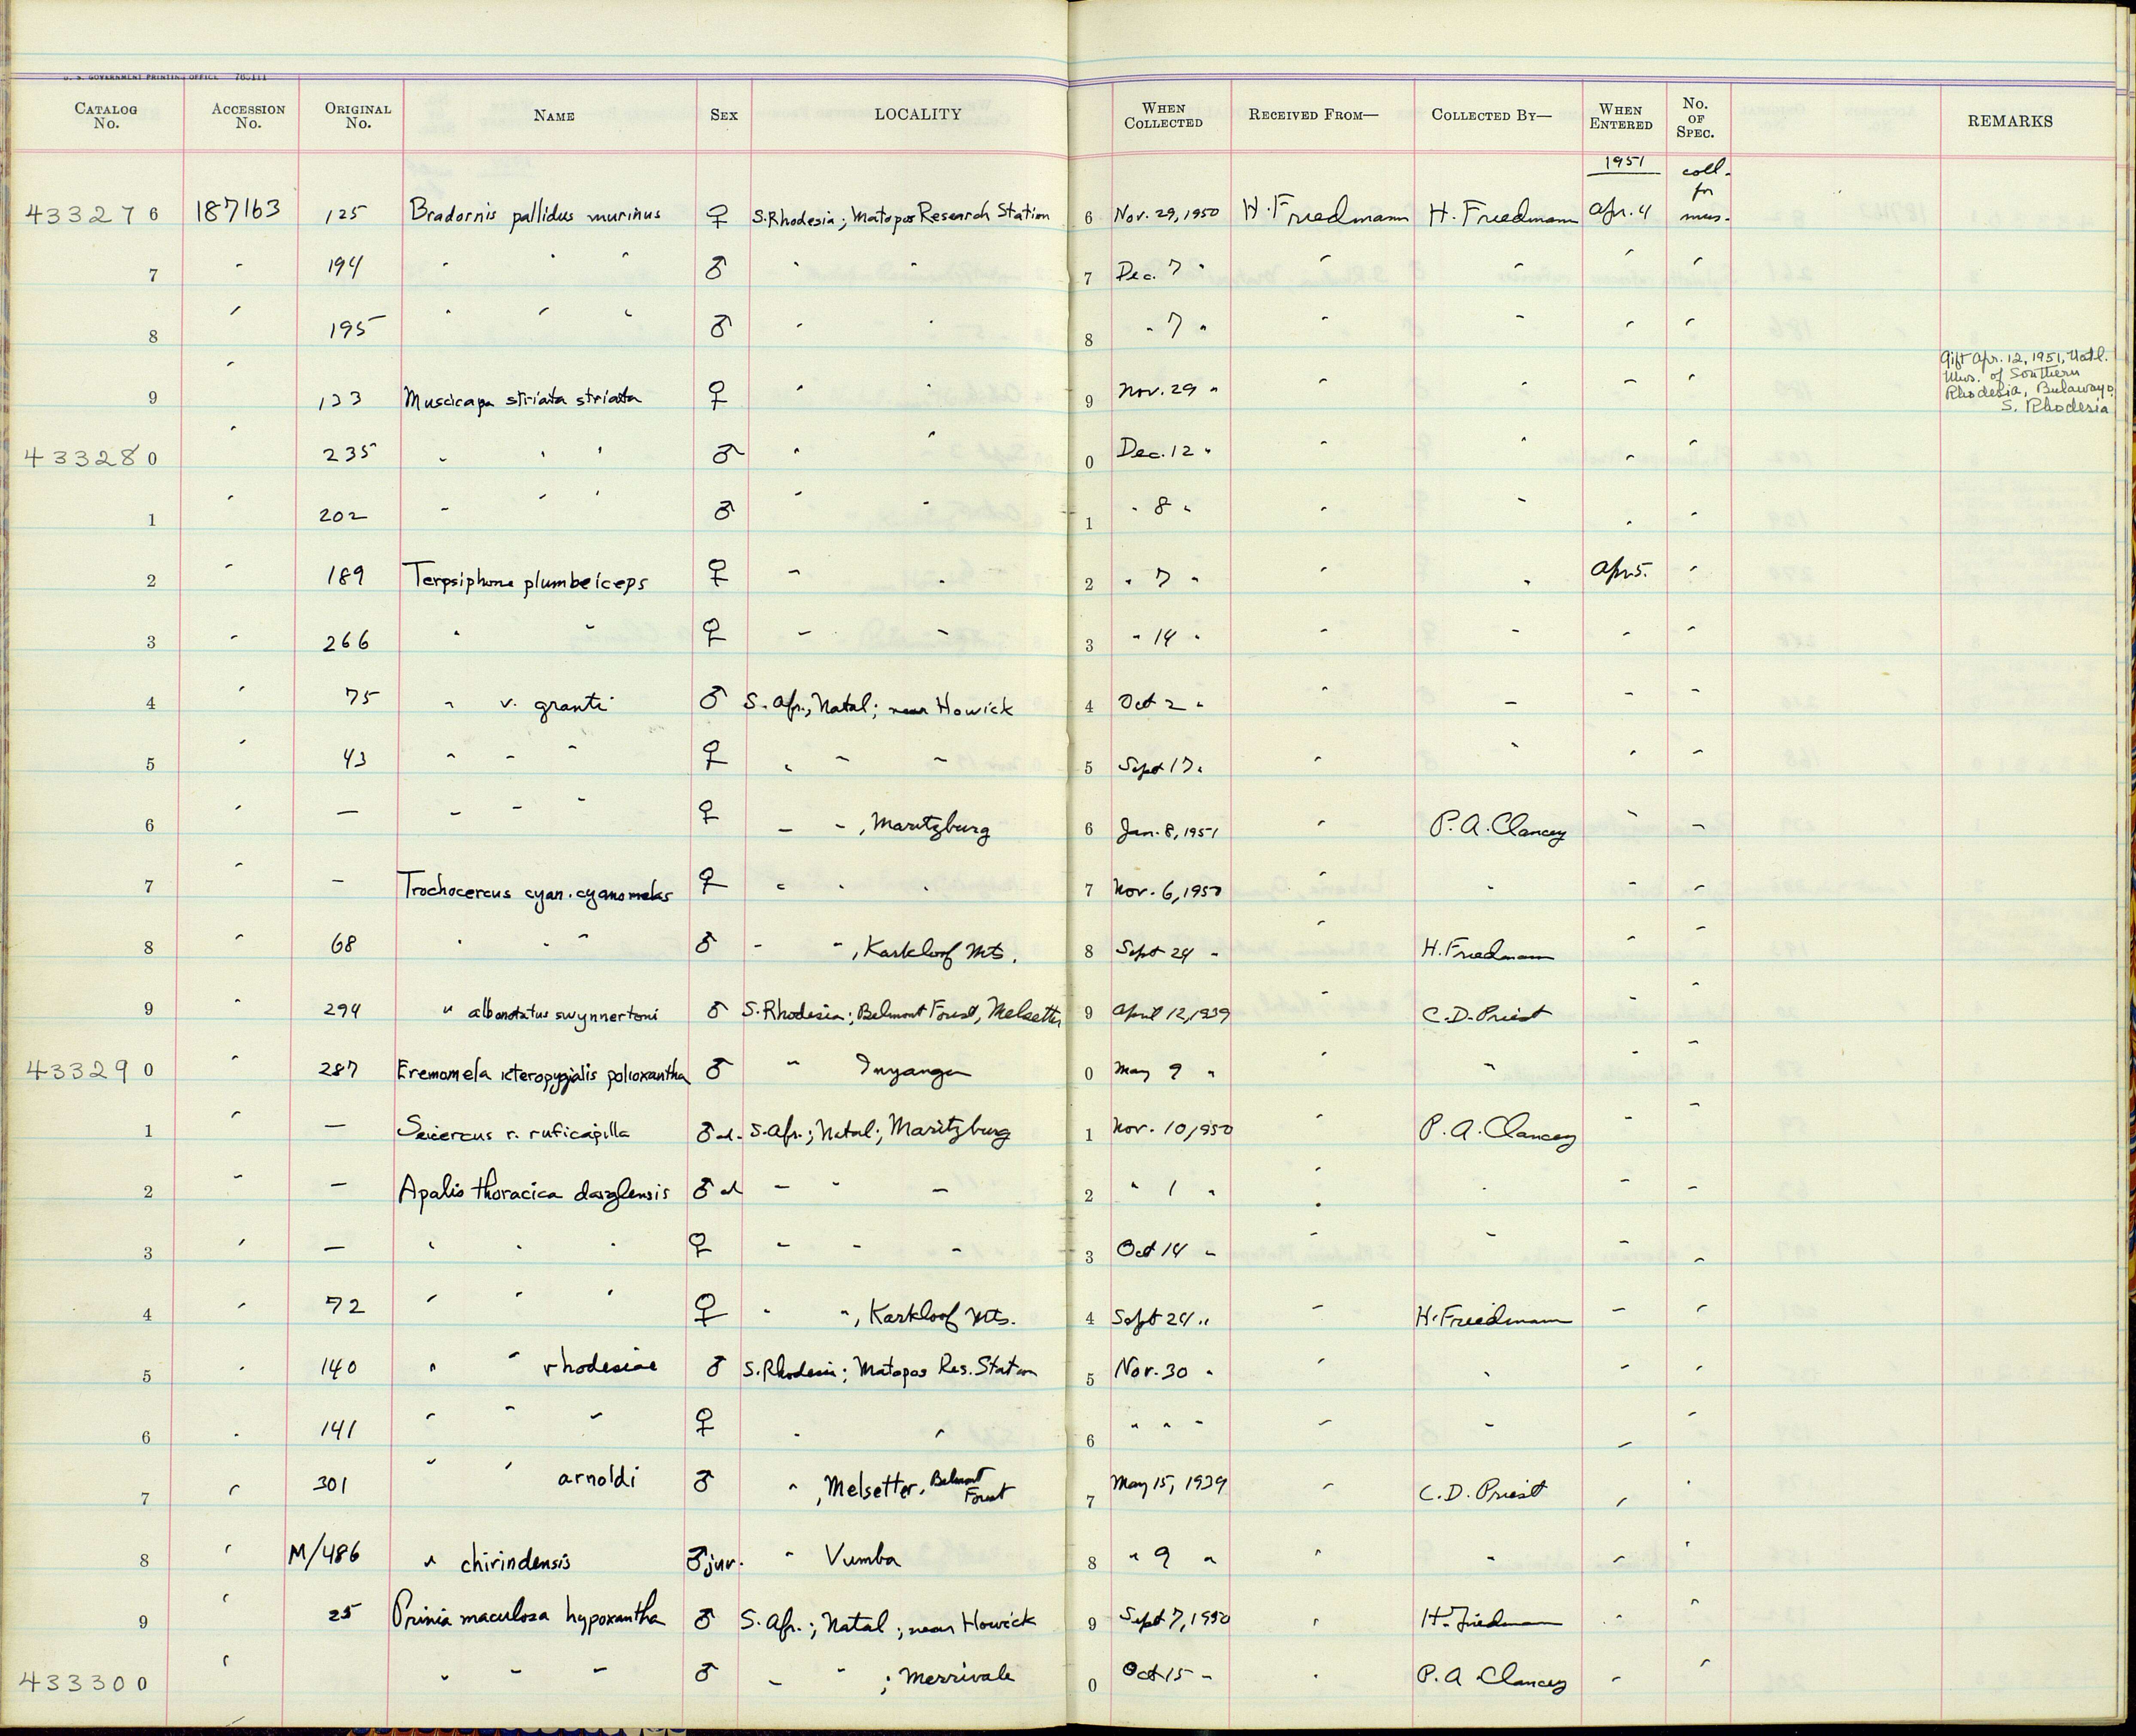 U. S. GOVERNMENT PRINTING OFFICE
CATALOG No. ACCESSION No. ORIGINAL No. NAME SEX LOCALITY WHEN COLLECTED RECEIVED FROM— COLLECTED BY— WHEN ENTERED No. OF SPEC. REMARKS
1951 coll. for mus.
433276 187163 125 Bradornis pallidus murinus ♀ S. Rhodesia; Matopos Research Station 6 Nov. 29, 1950 H. Friedmann H. Friedmann Apr. 4
7 " 194 " " " ♂ " " 7 Dec. 7 " " " " "
8 " 195 " " " ♂ " " 8 " 7 " " " " "
9 " 133 Muscicapa striata striata ♀ " " 9 Nov. 29 " " " " " Gift Apr. 12, 1951, Natl. Mus. of Southern Rhodesia, Bulawayo, S. Rhodesia
433280 " 235 " " " ♂ " " 0 Dec. 12 " " " " "
1 " 202 " " " ♂ " " 1 " 8 " " " " "
2 " 189 Terpsiphone plumbeiceps ♀ " " 2 " 7 " " " Apr. 5. "
3 " 266 " " ♀ " " 3 " 14 " " " " "
4 " 75 " v. granti ♂ S. Afr., Natal; near Howick 4 Oct 2 " " " " "
5 " 43 " " " ♀ " " " 5 Sept 17 " " " " "
6 " — " " " ♀ " ", Maritzburg 6 Jan. 8, 1951 " P. A. Clancey " "
7 " — Trochocercus cyan. cyanomelas ♀ " " " 7 Nov. 6, 1950 " " " "
8 " 68 " " " ♂ " ", Karkloof Mts. 8 Sept 24 " " H. Friedmann " "
9 " 294 " albonotatus swynnertoni ♂ S. Rhodesia; Belmont Forest, Melsetter 9 April 12, 1939 C. D. Priest " "
433290 " 287 Eremomela icteropygialis polioxantha ♂ " Inyanga 0 May 9 " " " " "
1 " — Seicercus r. ruficapilla ♂ ad. S. Afr.; Natal; Maritzburg 1 Nov. 10, 1950 " P. A. Clancey " "
2 " — Apalis thoracica darglensis ♂ ad " " " 2 " 1 " " " " "
3 " — " " " ♀ " " " 3 Oct 14 " " " " "
4 " 72 " " " ♀ " ", Karkloof Mts. 4 Sept 24 " " H. Friedmann " "
5 " 140 " " rhodesiae ♂ S. Rhodesia; Matopos Res. Station 5 Nov. 30 " " " " "
6 " 141 " " " ♀ " " 6 " " " " " " "
7 " 301 " " arnoldi ♂ ", Melsetter, Belmont Forest 7 May 15, 1939 " C. D. Priest " "
8 " M/486 " chirindensis ♂ juv. " Vumba 8 " 9 " " " " "
9 " 25 Prinia maculosa hypoxantha ♂ S. Afr.; Natal; near Howick 9 Sept 7, 1950 " H. Friedmann " "
433300 " " " " ♂ " " ; Merrivale 0 Oct 15 " " P. A Clancey " "